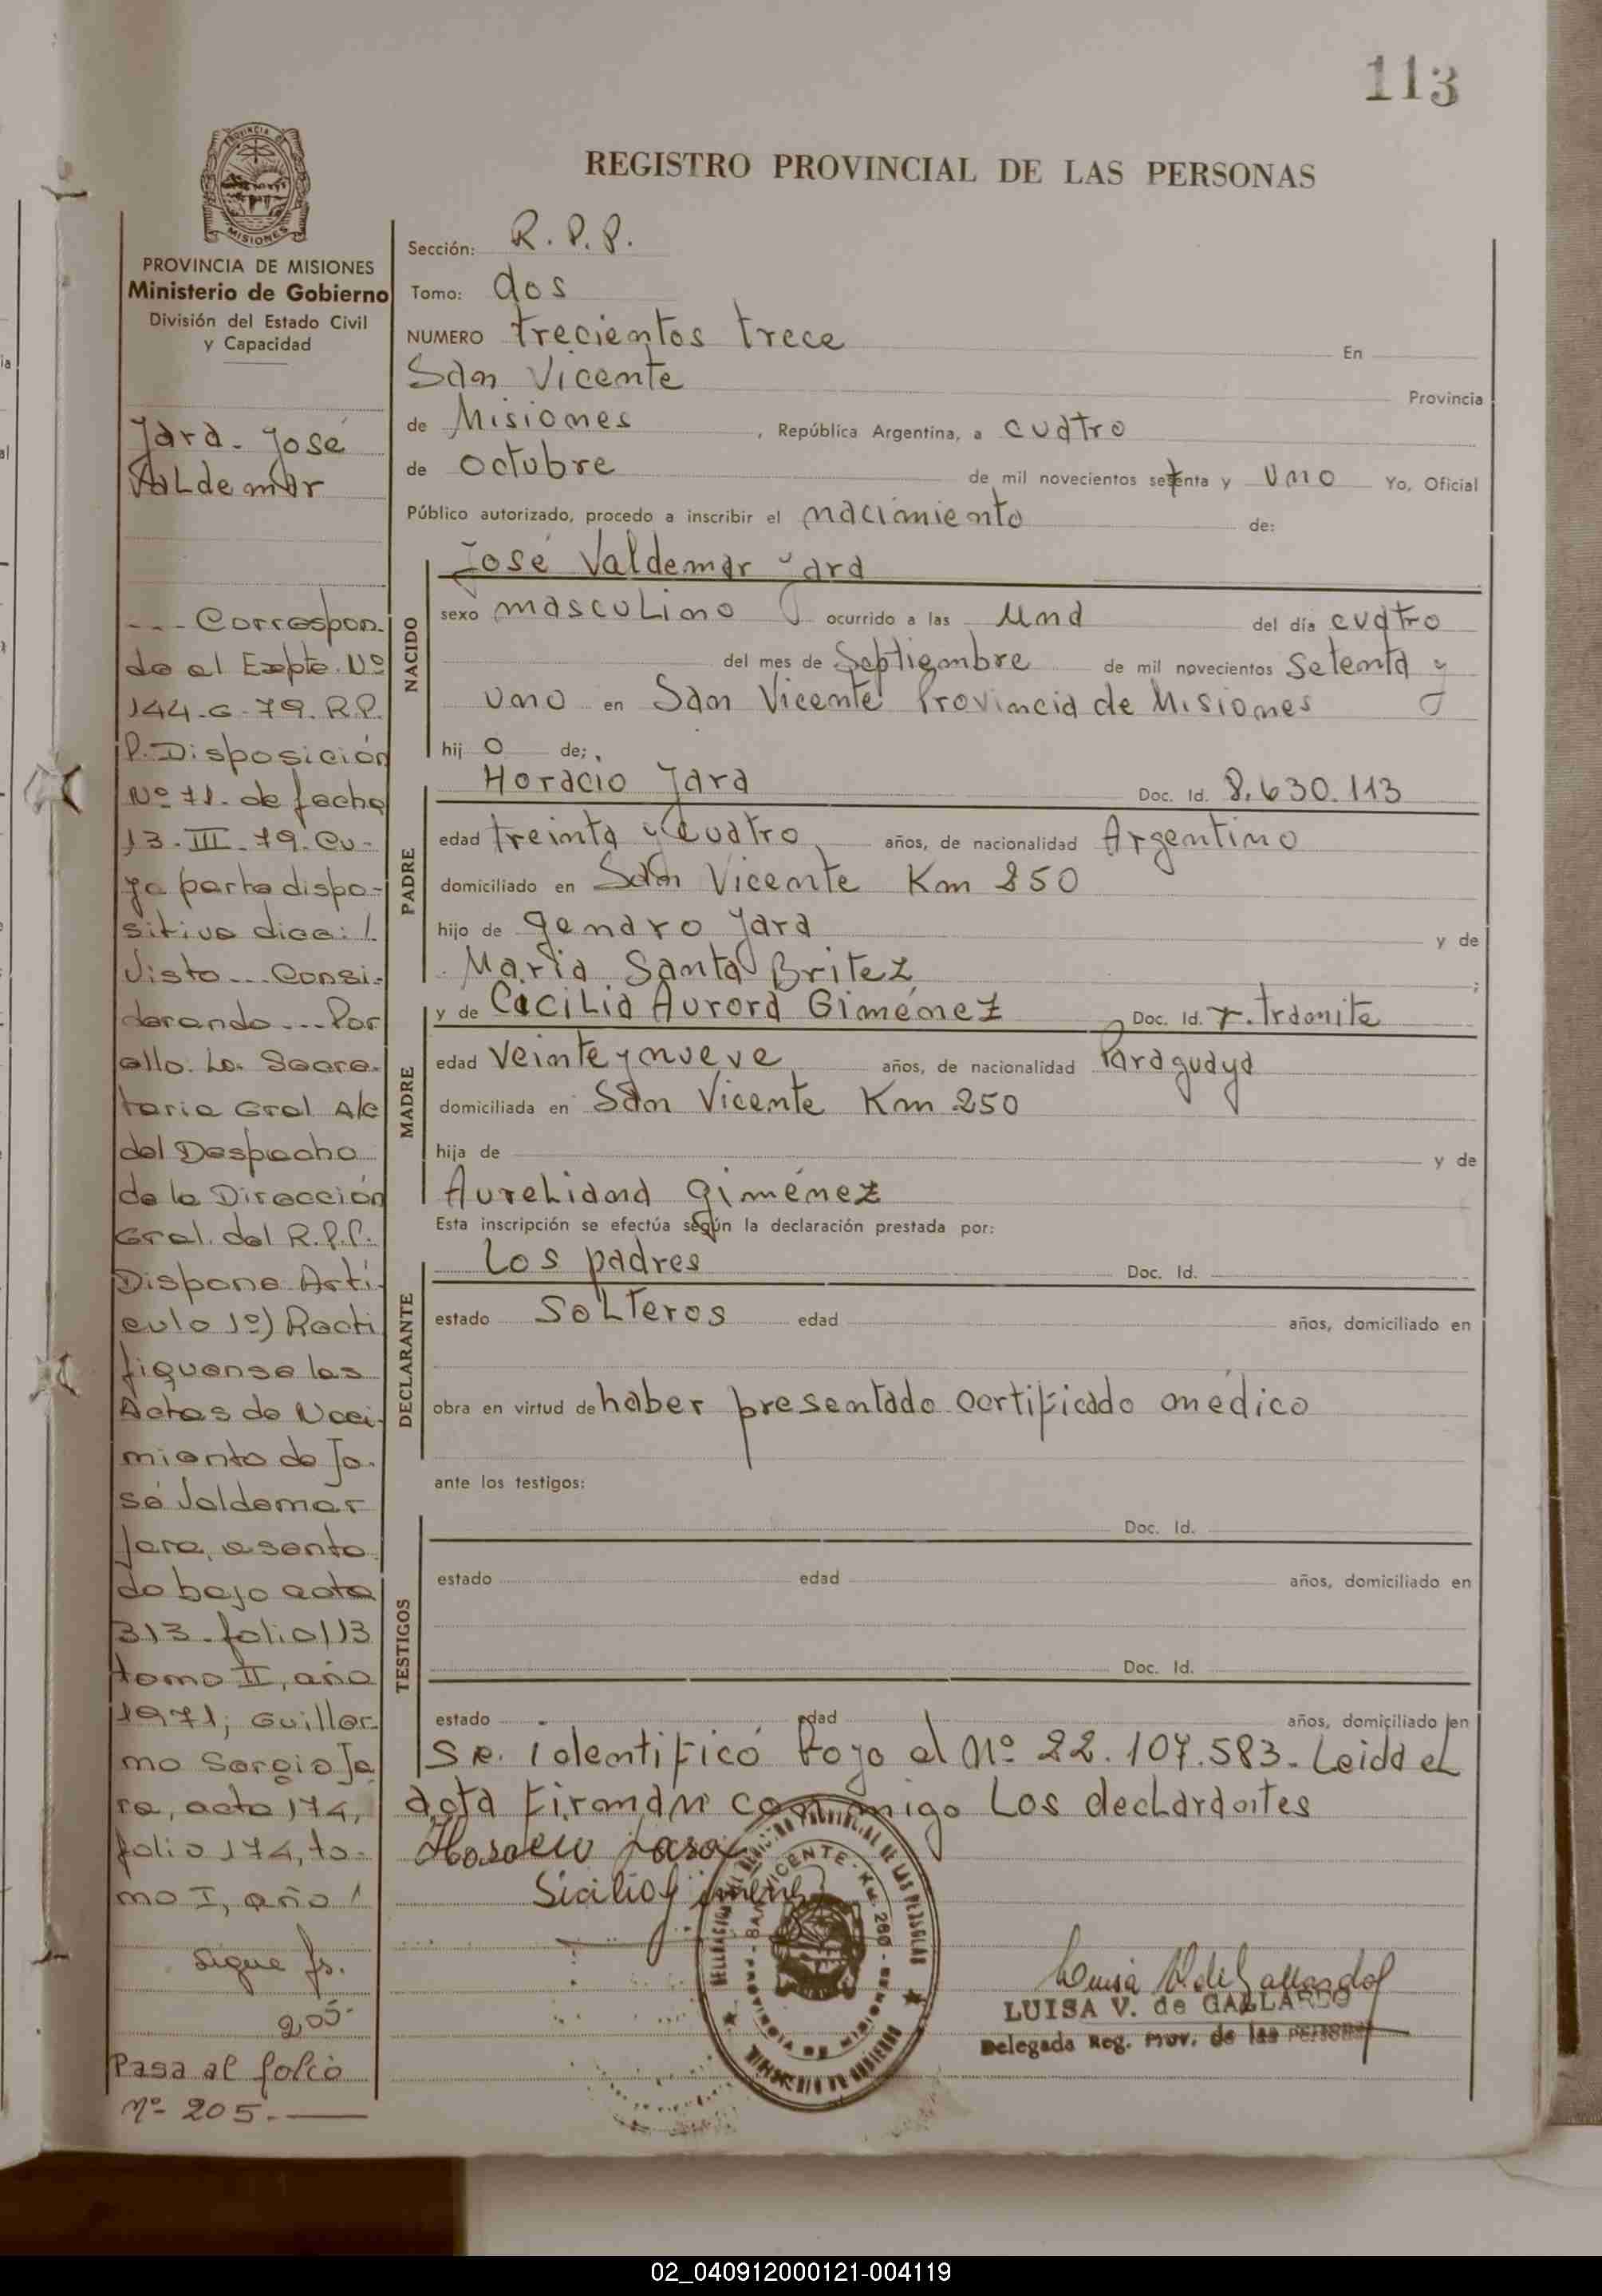 113
REGISTRO PROVINCIAL DE LAS PERSONAS
PROVINCIA DE
MISIONES
PROVINCIA DE MISIONES
Ministerio de Gobierno
División del Estado Civil
y Capacidad
Jara - José
Valdemar
--- Correspon-
de al Expte. Nº
144-G-79. R.P.
P. Disposición
Nº 71. de fecha
13-III-79. Cu-
ya parte dispo-
sitiva dice:
Visto... Consi-
derando... Por
ello. La Secre-
taria Gral A/c
del Despacho
de la Dirección
Gral. del R.P.P.
Dispone Artí-
culo 1º) Recti
fiquense las
Actas de Naci-
miento de Jo-
sé Valdemar
Jara, asenta
do bajo acta
313 - folio 113
tomo II, año
1971; Guiller-
mo Sergio Ja
ra, acta 174,
folio 174, to-
mo I, año
sigue fs.
205-
Pasa al folio
nº 205. ——
Sección: R. P. P.
Tomo: dos
NUMERO trecientos trece En
San Vicente Provincia
de Misiones , República Argentina, a cuatro
de octubre de mil novecientos setenta y uno Yo, Oficial
Público autorizado, procedo a inscribir el nacimiento de:
NACIDO
José Valdemar Jara
sexo masculino ocurrido a las Una del día cuatro
del mes de Septiembre de mil novecientos Setenta y
uno en San Vicente Provincia de Misiones
hij o de;
PADRE
Horacio Jara Doc. Id. 8.630.113
edad treinta y cuatro años, de nacionalidad Argentino
domiciliado en San Vicente Km 250
hijo de Genaro Jara y de
Maria Santa Britez ;
MADRE
y de Cicilia Aurora Giménez Doc. Id. r. tramite
edad veinte y nueve años, de nacionalidad Paraguaya
domiciliada en San Vicente Km 250
hija de y de
Aureliana Giménez
Esta inscripción se efectúa según la declaración prestada por:
DECLARANTE
Los padres Doc. Id.
estado solteros edad años, domiciliado en
obra en virtud de haber presentado certificado médico
ante los testigos:
TESTIGOS
Doc. Id.
estado edad años, domiciliado en
Doc. Id.
estado edad años, domiciliado en
Se identificó bajo el Nº 22.107.583- Leida el
acta firman conmigo Los declarantes
Horacio Jara
Sicilio Gimenez
SAN VICENTE - Km. 260 -
PROVINCIA DE MISIONES
MINISTERIO DE GOBIERNO
Luisa V. de Gallardo
LUISA V. de GALLARDO
Delegada Reg. Prov. de las Personas
02_040912000121-004119